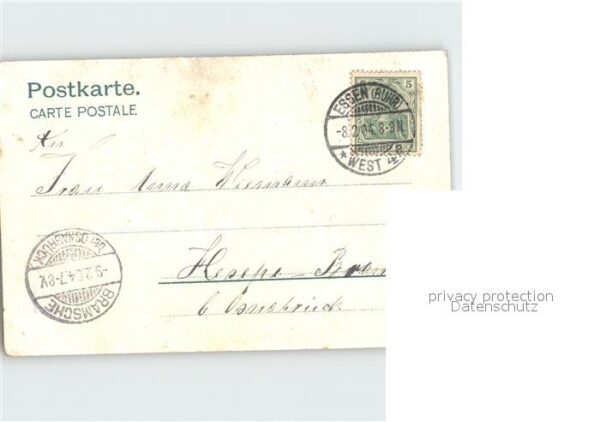 Postkarte.
CARTE POSTALE.
5
ESSEN (RUHR)
-8.2.04. 8-9N.
* WEST 4 a
An
Frau Anna Wiemann
Hesepe-Bram
b Osnabrück
BRAMSCHE
-9.2.04.7-8V.
(BZ. OSNABRÜCK)
privacy protection
Datenschutz